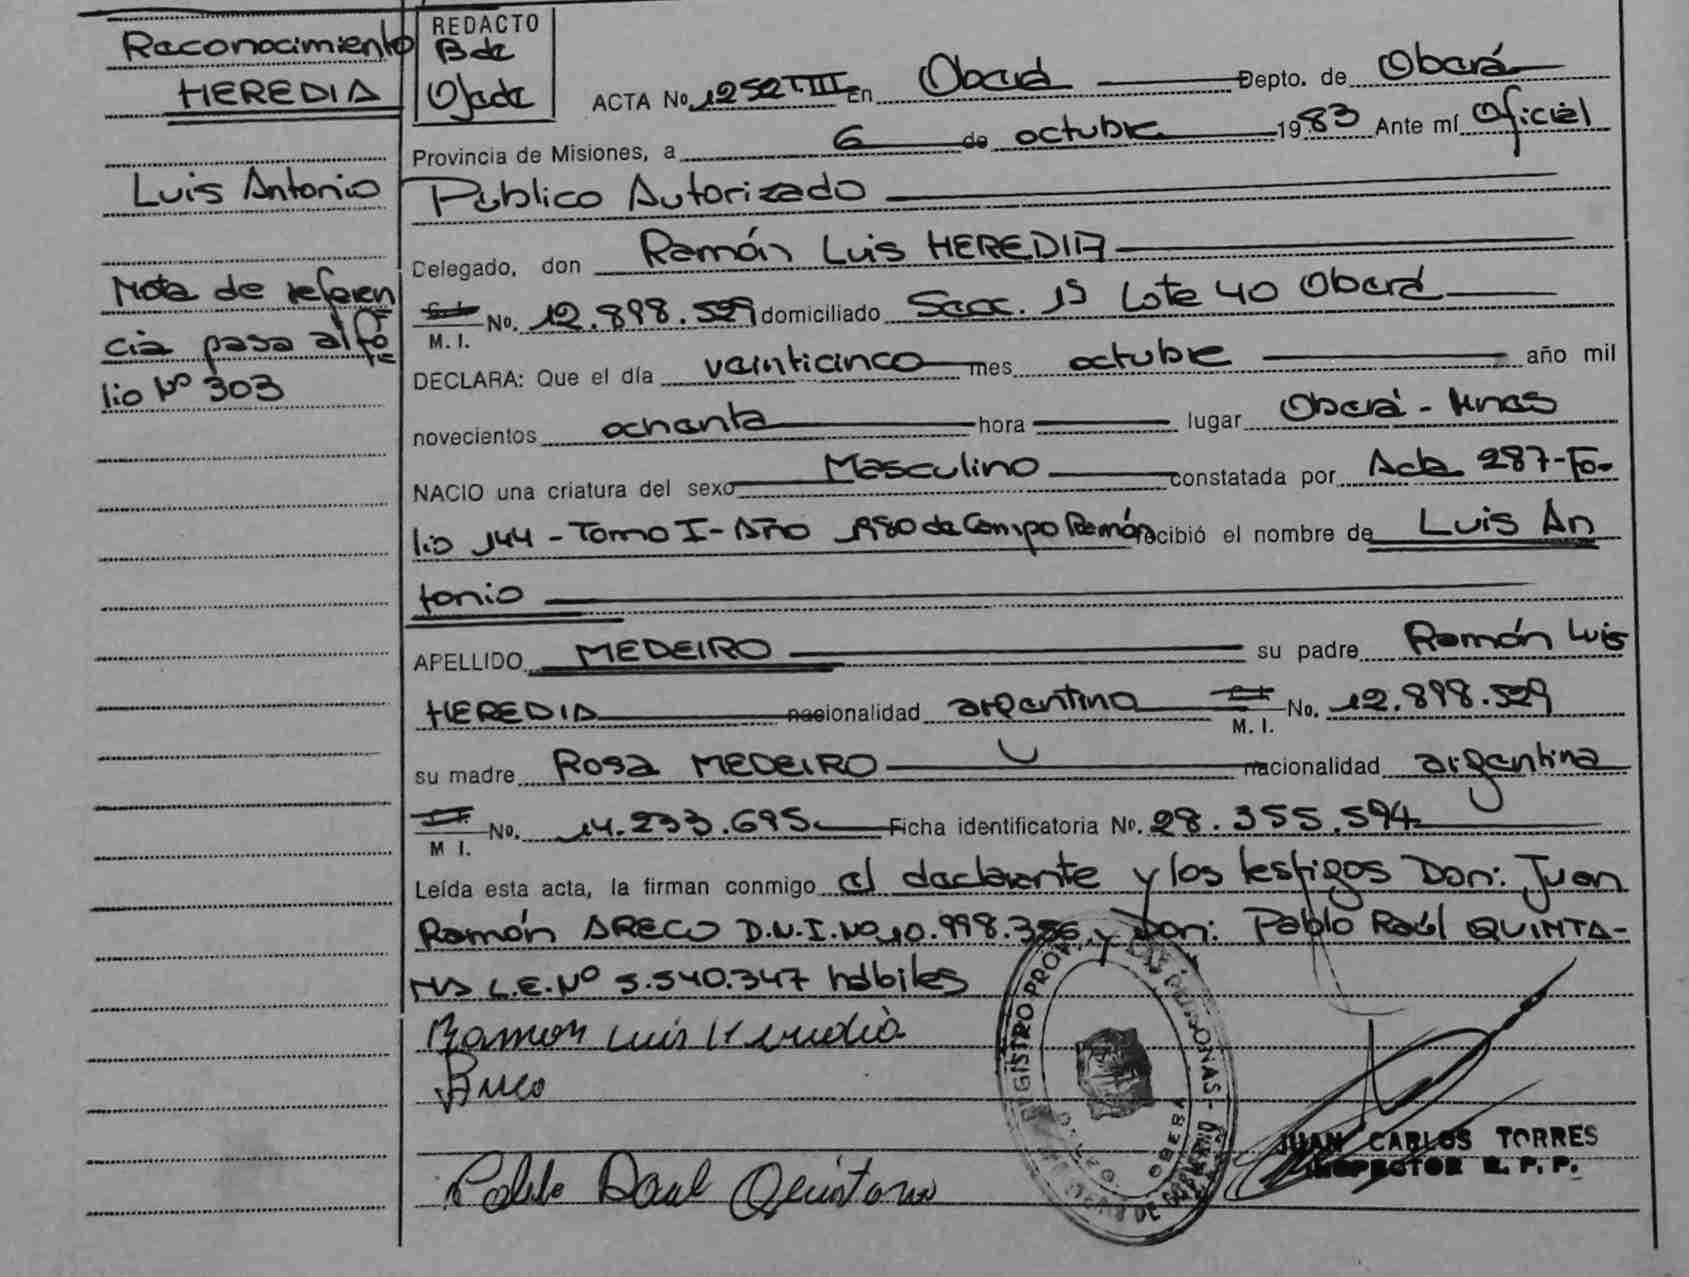 Reconocimiento
HEREDIA
Luis Antonio
Nota de referen
cia pasa al fo
lio Nº 303
REDACTO
B de
Ojeda
ACTA No. 1252 T III En Oberá Depto. de Oberá
Provincia de Misiones, a 6 de octubre 1983 Ante mí Oficial
Público Autorizado
Delegado, don Ramón Luis HEREDIA
M. I. No. 12.898.529 domiciliado Secc. 1ª Lote 40 Oberá
DECLARA: Que el día veinticinco mes octubre año mil
novecientos ochenta hora lugar Oberá - Mnes
NACIO una criatura del sexo Masculino constatada por Acta 287-Fo-
lio 144 - Tomo I - Año 1980 de Campo Ramón recibió el nombre de Luis An
tonio
APELLIDO MEDEIRO su padre Ramón Luis
HEREDIA nacionalidad argentina M. I. No. 12.898.529
su madre Rosa MEDEIRO nacionalidad argentina
M I. No. 14.233.695 Ficha identificatoria No. 28.355.594
Leída esta acta, la firman conmigo el declarante y los testigos Don: Juan
Ramón ARECO D.N.I. No 10.998.356 y Don: Pablo Raúl QUINTA-
NA L.E. Nº 5.540.347 hábiles
Ramon Luis Heredia
Areco
Pablo Raul Quintana
REGISTRO PROV. DE LAS PERSONAS
OBERA
JUAN CARLOS TORRES
INSPECTOR R. P. P.